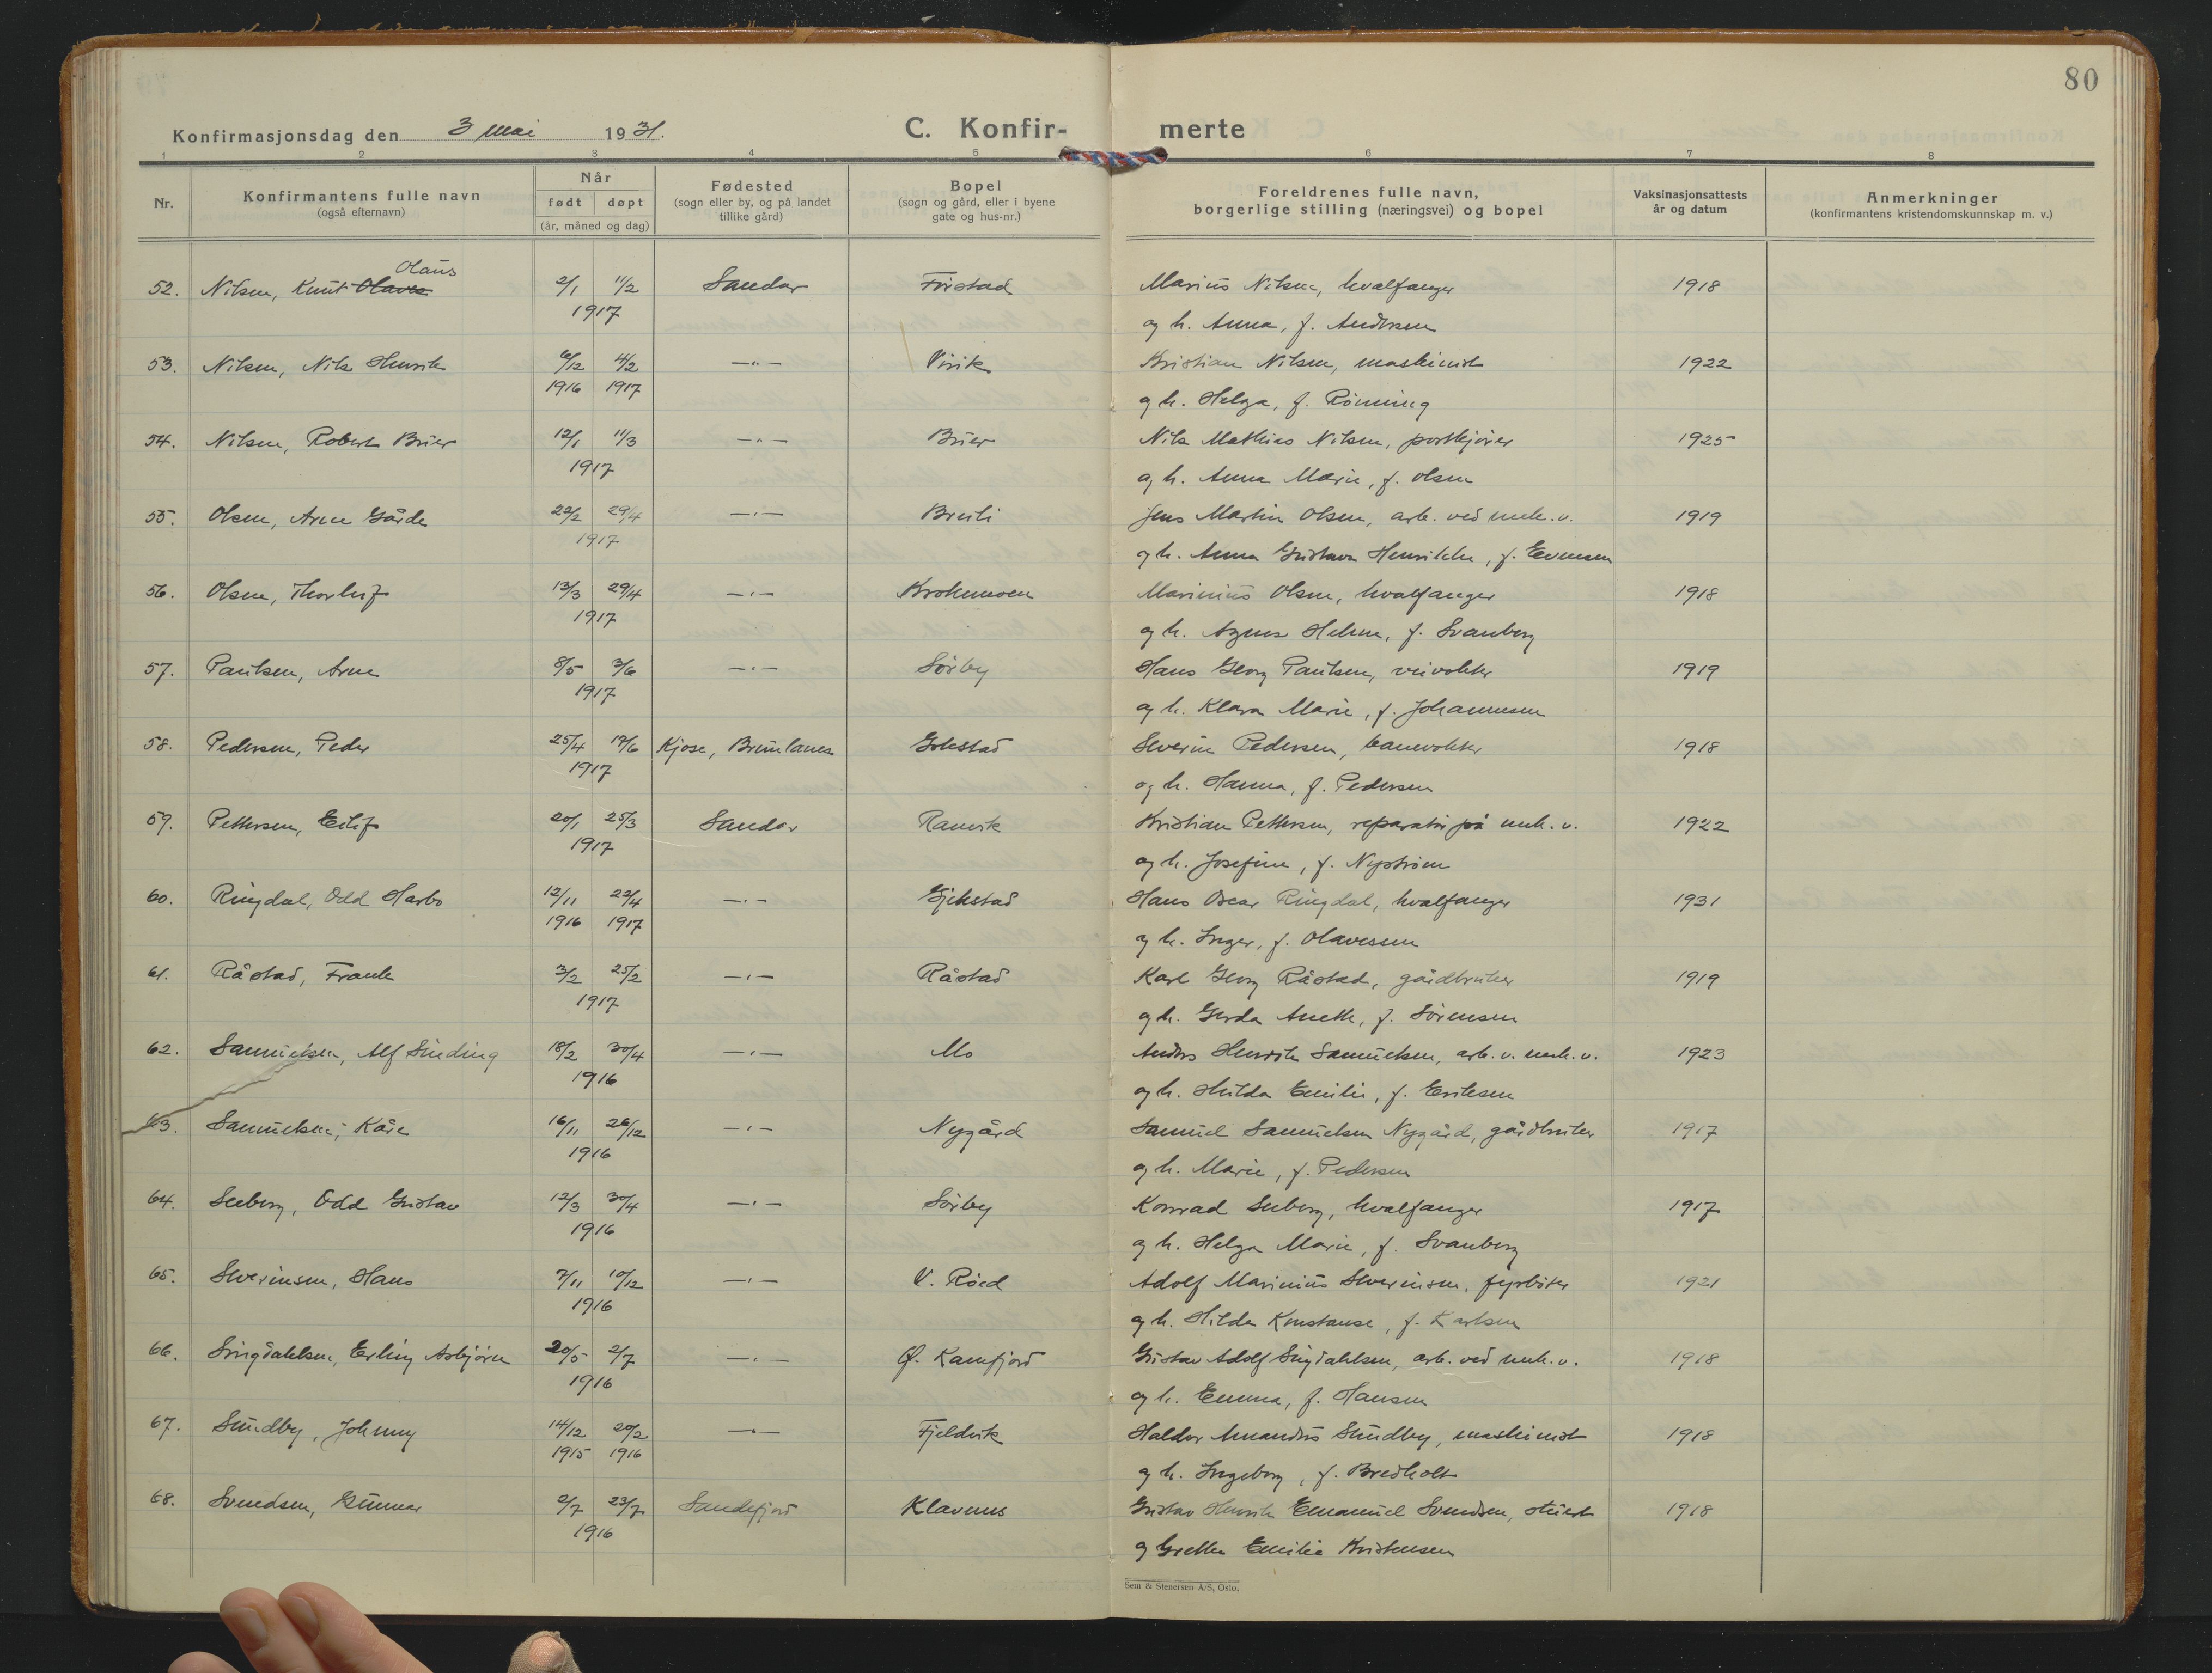 80
Konfirmasjonsdag den 3 mai 1931.
C. Konfir- merte
1 2 3 4 5 6 7 8
Nr.
Konfirmantens fulle navn
(også efternavn)
Når
født døpt
(år, måned og dag)
Fødested
(sogn eller by, og på landet
tillike gård)
Bopel
(sogn og gård, eller i byene
gate og hus-nr.)
Foreldrenes fulle navn,
borgerlige stilling (næringsvei) og bopel
Vaksinasjonsattests
år og datum
Anmerkninger
(konfirmantens kristendomskunnskap m. v.)
Olaus
52. Nilsen, Knut Olaves 2/1 11/2 Sandar Firstad Marius Nilsen, hvalfanger 1918
1917 og h. Anna, f. Andersen
53. Nilsen, Nils Henrik 6/12 4/2 —"— Virik Kristian Nilsen, maskinist 1922
1916 1917 og h. Helga, f. Rönning
54. Nilsen, Robert Bruer 12/1 11/3 —"— Bruer Nils Mathias Nilsen, postkjører 1925
1917 og h. Anna Marie, f. Olsen
55. Olsen, Arne Gårde 22/2 29/4 —"— Breili Jens Martin Olsen, arb. ved mek. v. 1919
1917 og h. Anna Gustava Henrikke, f. Evensen
56. Olsen, Thorleif 13/3 29/4 —"— Krokemoen Marinius Olsen, hvalfanger 1918
1917 og h. Agnes Helene, f. Svanberg
57. Paulsen, Arne 8/5 3/6 —"— Sörby Hans Georg Paulsen, veivokter 1919
1917 og h. Klara Marie, f. Johannesen
58. Pedersen, Peder 25/4 17/6 Kjose, Brunlanes Gokstad Severin Pedersen, banevokter 1918
1917 og h. Hanna, f. Pedersen
59. Pettersen, Eilif 20/1 25/3 Sandar Ranvik Kristian Pettersen, reparatör på mek. v. 1922
1917 og h. Josefine, f. Nyström
60. Ringdal, Odd Harbo 12/11 22/4 —"— Gjekstad Hans Oscar Ringdal, hvalfanger 1931
1916 1917 og h. Inger, f. Olavesen
61. Råstad, Frank 3/2 25/2 —"— Råstad Karl Georg Råstad, gårdbruker 1919
1917 og h. Gerda Anette, f. Sörensen
62. Samuelsen, Alf Sinding 18/2 30/4 —"— Mo Anders Henrik Samuelsen, arb. v. mek. v. 1923
1916 og h. Hilda Emilie, f. Eriksen
63. Samuelsen, Kåre 16/11 26/12 —"— Nygård Samuel Samuelsen Nygård, gårdbruker 1917
1916 og h. Marie, f. Pedersen
64. Seeberg, Odd Gustav 12/3 30/4 —"— Sörby Konrad Seeberg, hvalfanger 1917
1916 og h. Helga Marie, f. Svanberg
65. Severinsen, Hans 7/11 10/12 —"— V. Röed Adolf Marinius Severinsen, fyrböter 1921
1916 og h. Hilda Konstanse, f. Karlsen
66. Singdahlsen, Erling Asbjörn 20/5 2/7 —"— Ø. Kamfjord Gustav Adolf Singdahlsen, arb. ved mek. v. 1918
1916 og h. Emma, f. Hansen
67. Sundby, Johnny 14/12 20/2 —"— Fjeldvik Haldor Amandus Sundby, maskinist 1918
1915 1916 og h. Ingeborg, f. Bredholt
68. Svendsen, Gunnar 2/7 23/7 Sandefjord Klavenes Gustav Henrik Emanuel Svendsen, stuert 1918
1916 og Grethe Emilie Kristensen
Sem & Stenersen A/S, Oslo.